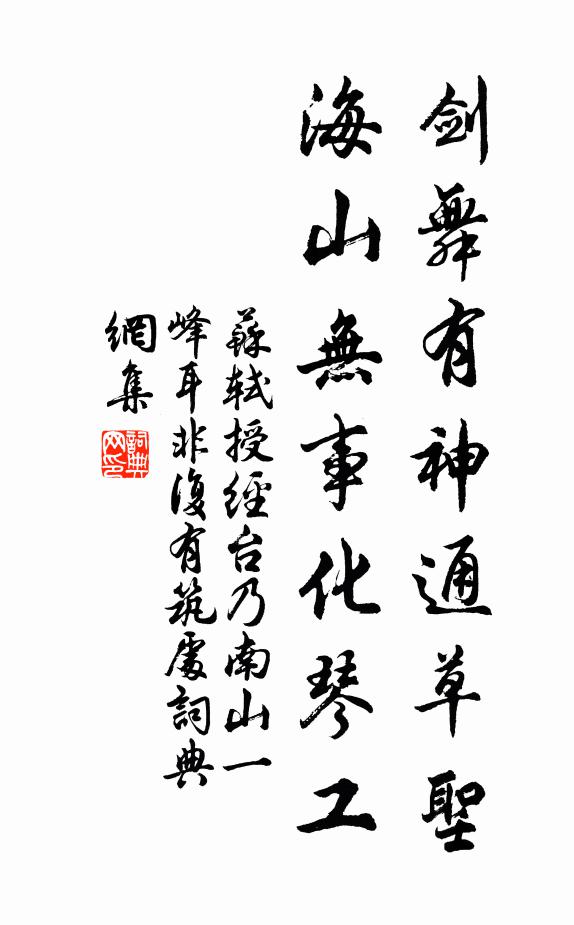 劍舞有神通草聖
海山無事化琴工
蘇軾授經台乃南山一
峰耳非復有筑處詞典
網集
詞典
网印